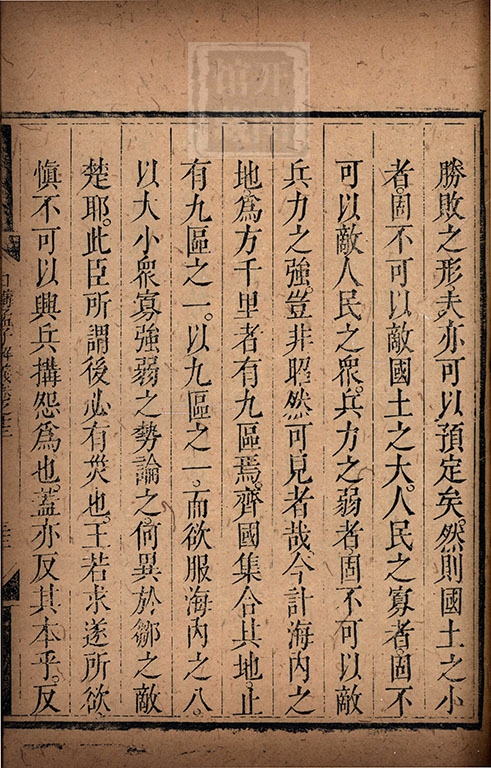 勝敗之形夫亦可以預定矣然則國土之小
者固不可以敵國土之大人民之寡者固不
可以敵人民之衆兵力之弱者固不可以敵
兵力之強豈非昭然可見者哉今計海內之
地爲方千里者有九區焉齊國集合其地止
有九區之一以九區之一而欲服海內之八
以大小衆寡強弱之勢論之何異於鄒之敵
楚耶此臣所謂後必有災也王若求遂所欲
慎不可以興兵搆怨爲也蓋亦反其本乎反
日講四書解義卷之十三